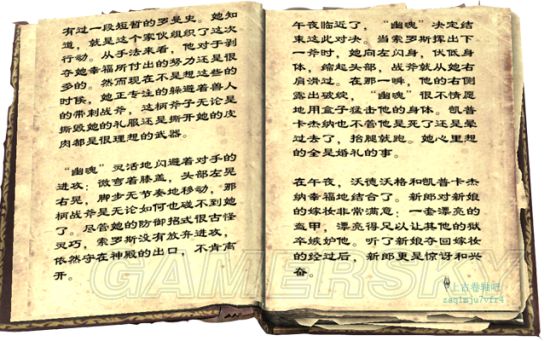 有过一段短暂的罗曼史。她知
道，就是这个家伙组织了这次
行动。从手法来看，他对于剥
夺她幸福所付出的努力还是很
多的。然而现在不是想这些的
时候，她正专注的躲避着兽人
的带刺战斧，这柄斧子无论是
撕毁她的礼服还是撕开她的皮
肉都是很理想的武器。
“幽魂”灵活地闪避着对手的
进攻：微弯着膝盖，头部左晃
右晃，脚步无节奏地移动，那
柄战斧是无论如何也碰不到她
了。尽管她的防御招式很古怪
灵巧，索罗斯没有放弃进攻，
依然守在神殿的出口，不肯离
开。
午夜临近了，“幽魂”决定结
束这此对决。当索罗斯挥出下
一斧时，她向左闪身，伏低身
体，缩起头部，战斧就从她右
肩滑过。在那一瞬，他的右侧
露出破绽，“幽魂”很不情愿
地用盒子猛击他的身体。凯普
卡杰纳也不管他是死了还是晕
过去了，抬腿就跑。她心里想
的全是婚礼的事。
在午夜，沃德沃格和凯普卡杰
纳幸福地结合了。新郎对新娘
的嫁妆非常满意：一套漂亮的
盔甲，漂亮得足以让其他的狱
卒嫉妒他。听了新娘夺回嫁妆
的经过后，新郎更是惊讶和兴
奋。
GAMERSKY
上古卷轴吧
zaq1mju7vfr4